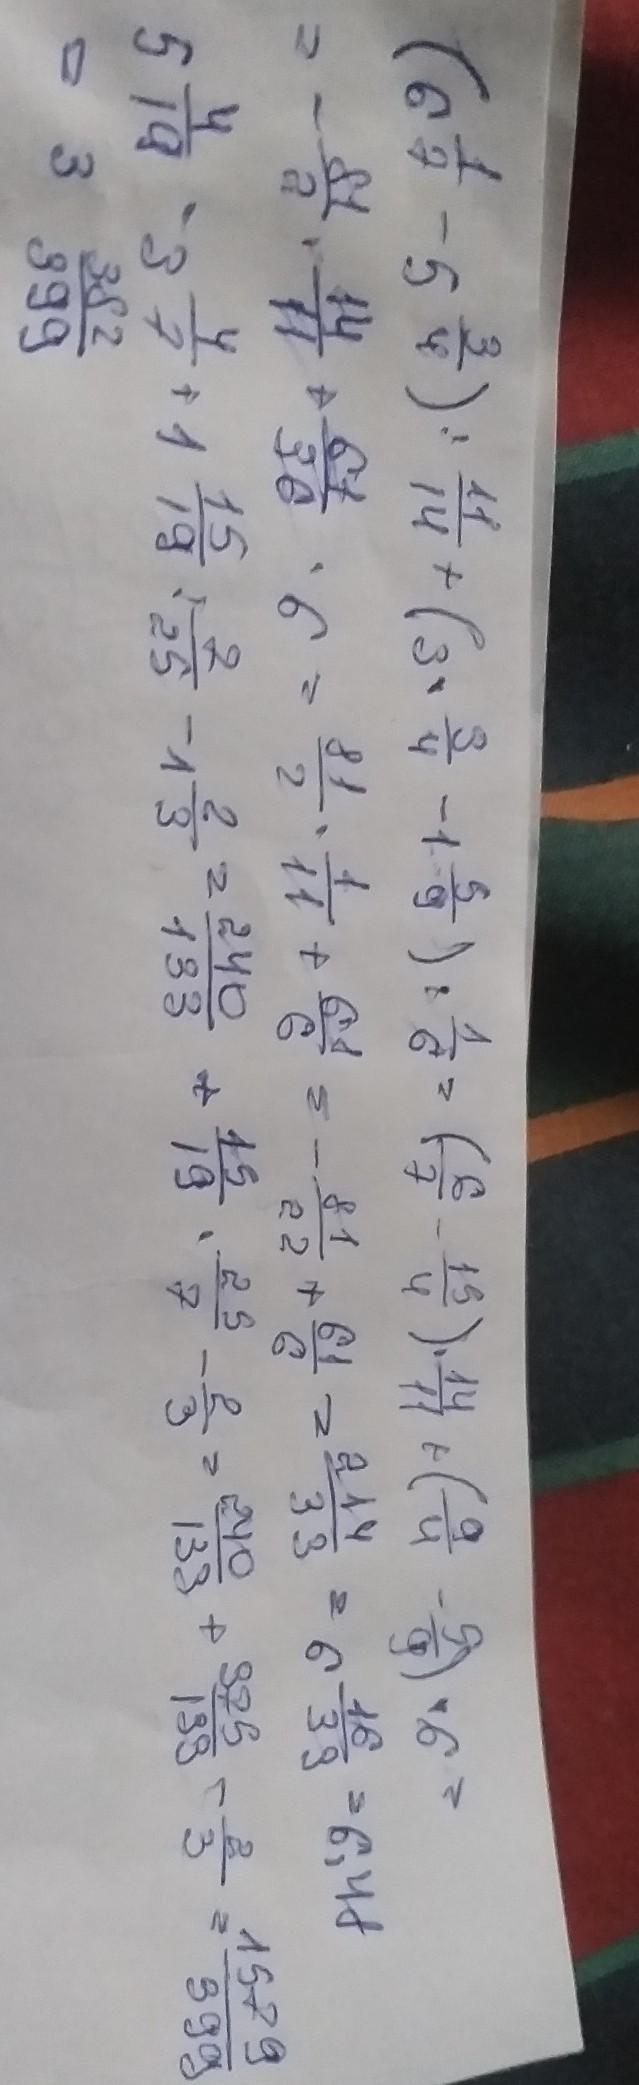 (6 1/7 - 5 3/4) : 11/14 + (3 · 3/4 - 1 5/9) : 1/6 = (6/7 - 15/4) · 14/11 + (9/4 - 5/9) · 6 =
= - 81/2 · 14/11 + 61/36 · 6 = 81/2 · 1/11 + 61/6 = - 81/22 + 61/6 = 214/33 = 6 16/33 = 6,48
5 4/19 · 3 4/7 + 1 15/19 : 7/25 - 1 2/3 = 240/133 + 15/19 · 25/7 - 2/3 = 240/133 + 375/133 - 2/3 = 1579/399
= 3 382/399